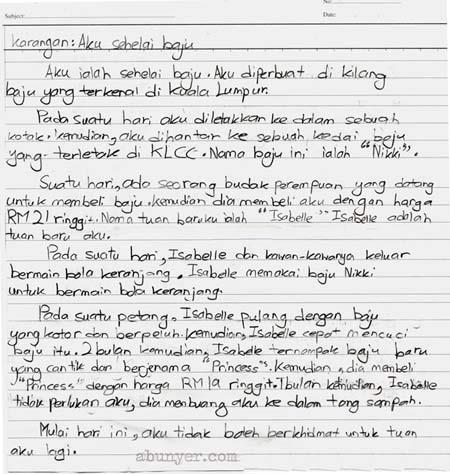 Subject:
No:
Date:
Karangan: Aku sehelai baju
Aku ialah sehelai baju. Aku diperbuat di kilang
baju yang terkenal di Kuala Lumpur.
Pada suatu hari aku diletakkan ke dalam sebuah
kotak. Kemudian, aku dihantar ke sebuah kedai baju
yang terletak di KLCC. Nama baju ini ialah "Nikki".
Suatu hari, ada seorang budak perempuan yang datang
untuk membeli baju. Kemudian dia membeli aku dengan harga
RM21 ringgit. Nama tuan baruku ialah "Isabelle" Isabelle adalah
tuan baru aku.
Pada suatu hari, Isabelle dan kawan-kawanya keluar
bermain bola keranjang. Isabelle memakai baju Nikki
untuk bermain bola keranjang.
Pada suatu petang, Isabelle pulang dengan baju
yang kotor dan berpeluh. Kemudian, Isabelle cepat mencuci
baju itu. 2 bulan kemudian, Isabelle ternampak baju baru
yang cantik dan berjenama "Princess". Kemudian, dia membeli
"Princess" dengan harga RM19 ringgit. 1 bulan kemudian, Isabelle
tidak perlukan aku, dia membuang aku ke dalam tong sampah.
Mulai hari ini, aku tidak boleh berkhidmat untuk tuan
aku lagi.
abunyer.com